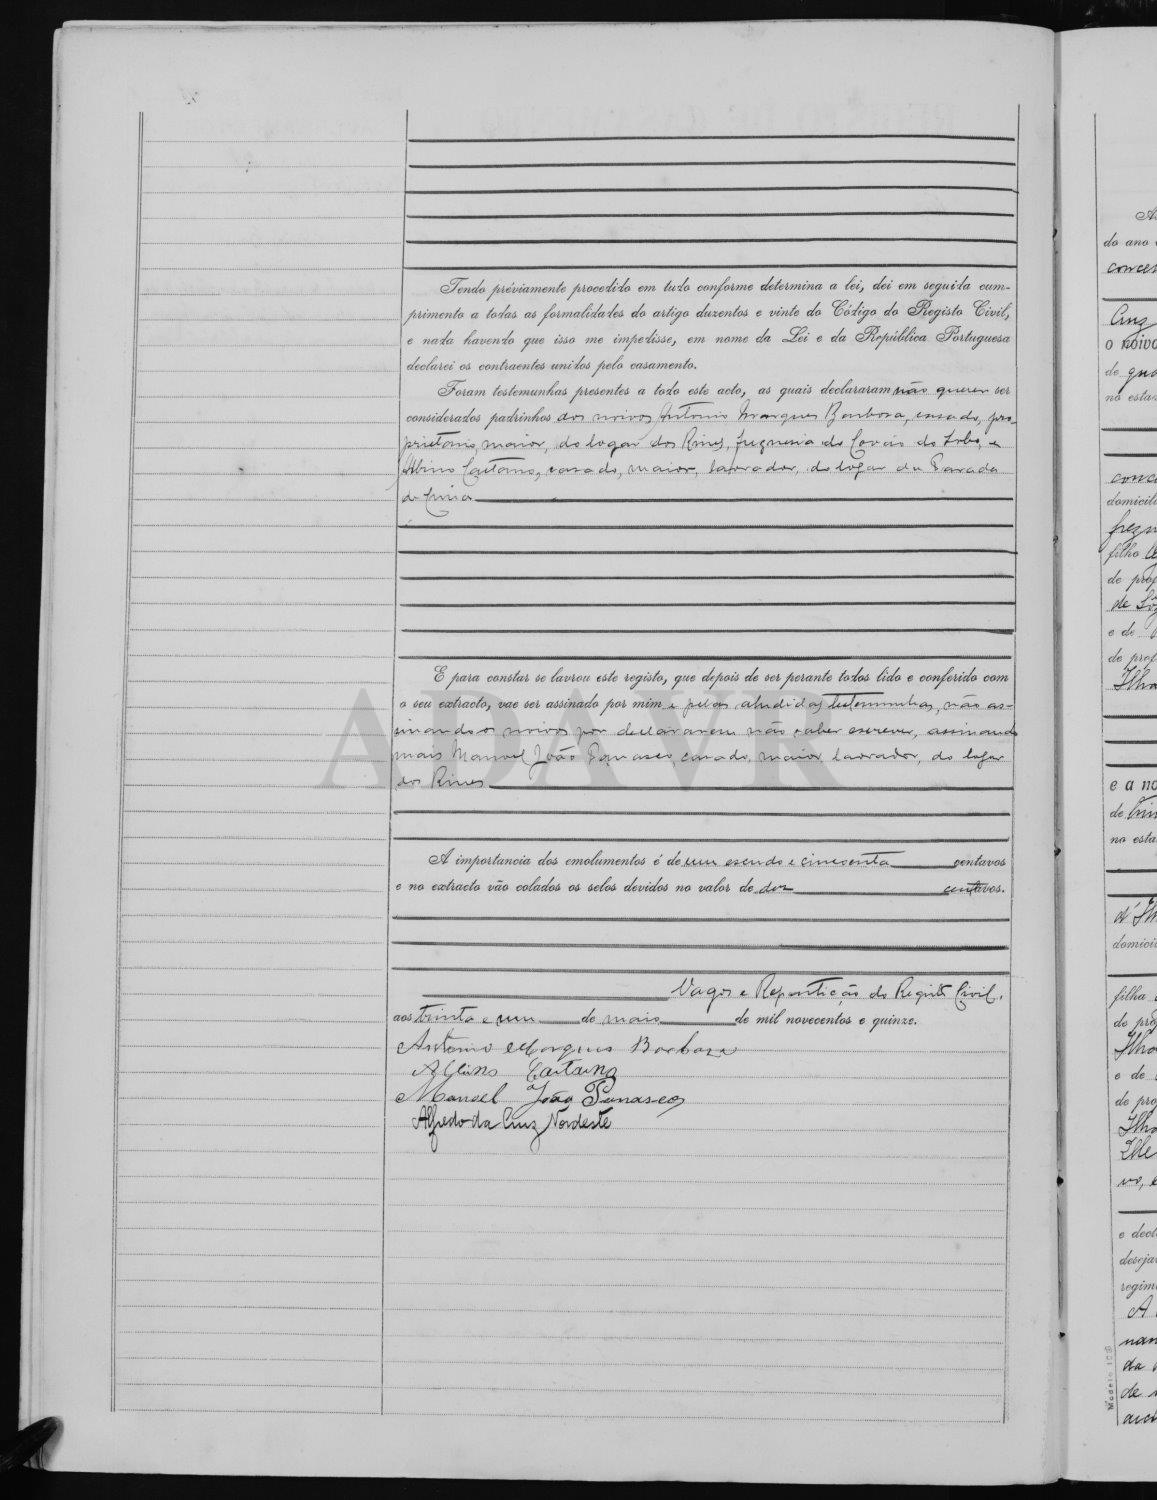 Tendo préviamente procedido em tudo conforme determina a lei, dei em seguida cum-
primento a todas as formalidades do artigo duzentos e vinte do Código do Registo Civil,
e nada havendo que isso me impedisse, em nome da Lei e da República Portuguesa
declarei os contraentes unidos pelo casamento.
Foram testemunhas presentes a todo este acto, as quais declararam não querer ser
considerados padrinhos dos noivos Antonio Marques Barbosa, casado, pro-
prietario, maior, do logar dos Rines, freguesia de Covão do Lobo, e
Albino Caetano, casado, maior, lavrador, do logar da Parada
de Cima
E para constar se lavrou este registo, que depois de ser perante todos lido e conferido com
o seu extracto, vae ser assinado por mim e pelas aludidas testemunhas, não as-
sinando os noivos por declararem não saber escrever, assinando
mais Manuel João casado, maior, lavrador, do logar
dos Rines
A importancia dos emolumentos é de um escudo e cincoenta centavos
e no extracto vão colados os selos devidos no valor de dez centavos.
Vagos e Repartição do Registo Civil,
aos trinta e um de maio de mil novecentos e quinze.
Antonio Marques Barbosa
Albino Caetano
Manoel João
Alfredo da Cruz Nordeste
ADAVR
do ano
Cruz
o noivo
de
no esta
domicili
filho
de prof
e de
de prof
Ilha
e a no
de
no esta
domici
filha
de pro
e de
de pro
e decl
deseja
regim
A
da
de
Modelo